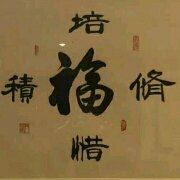 培
積 福 脩
惜